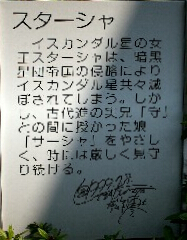 スターシャ
イスカンダル星の女
王スターシャは、暗黒
星団帝国の侵略により
イスカンダル星共々滅
ぼされてしまう。しか
し、古代進の実兄「守」
との間に授かった娘
「サーシャ」をやさし
く、時には厳しく見守
り続ける。